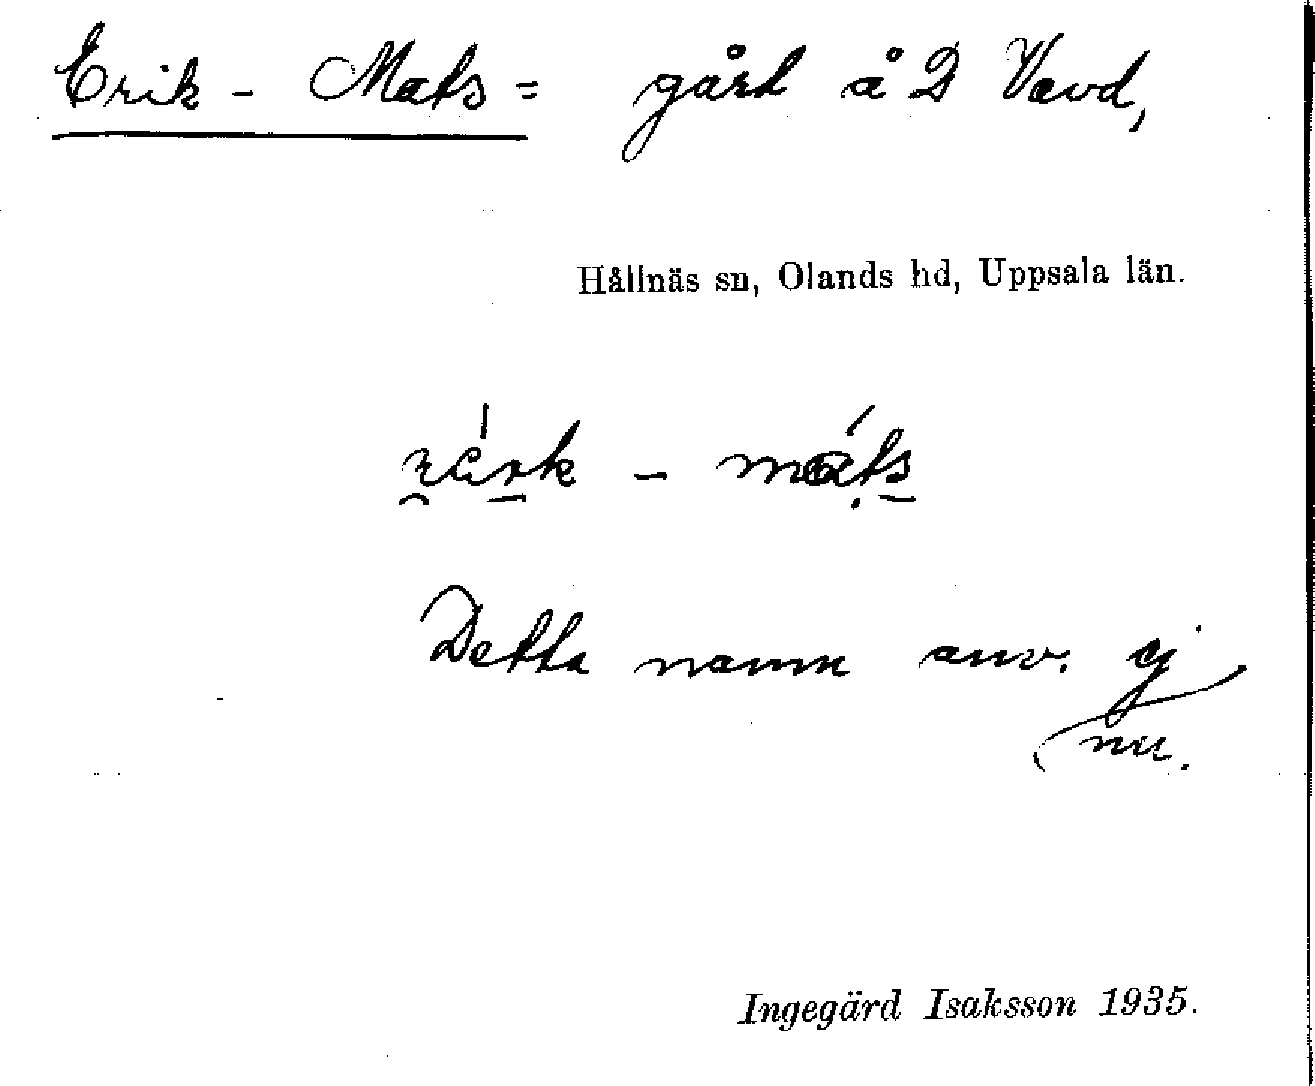 Erik - Mats = gård å 2 Vavd,
Hållnäs sn, Olands hd, Uppsala län.
- 
Detta namn anv. ej
nu.
Ingegärd Isaksson 1935.